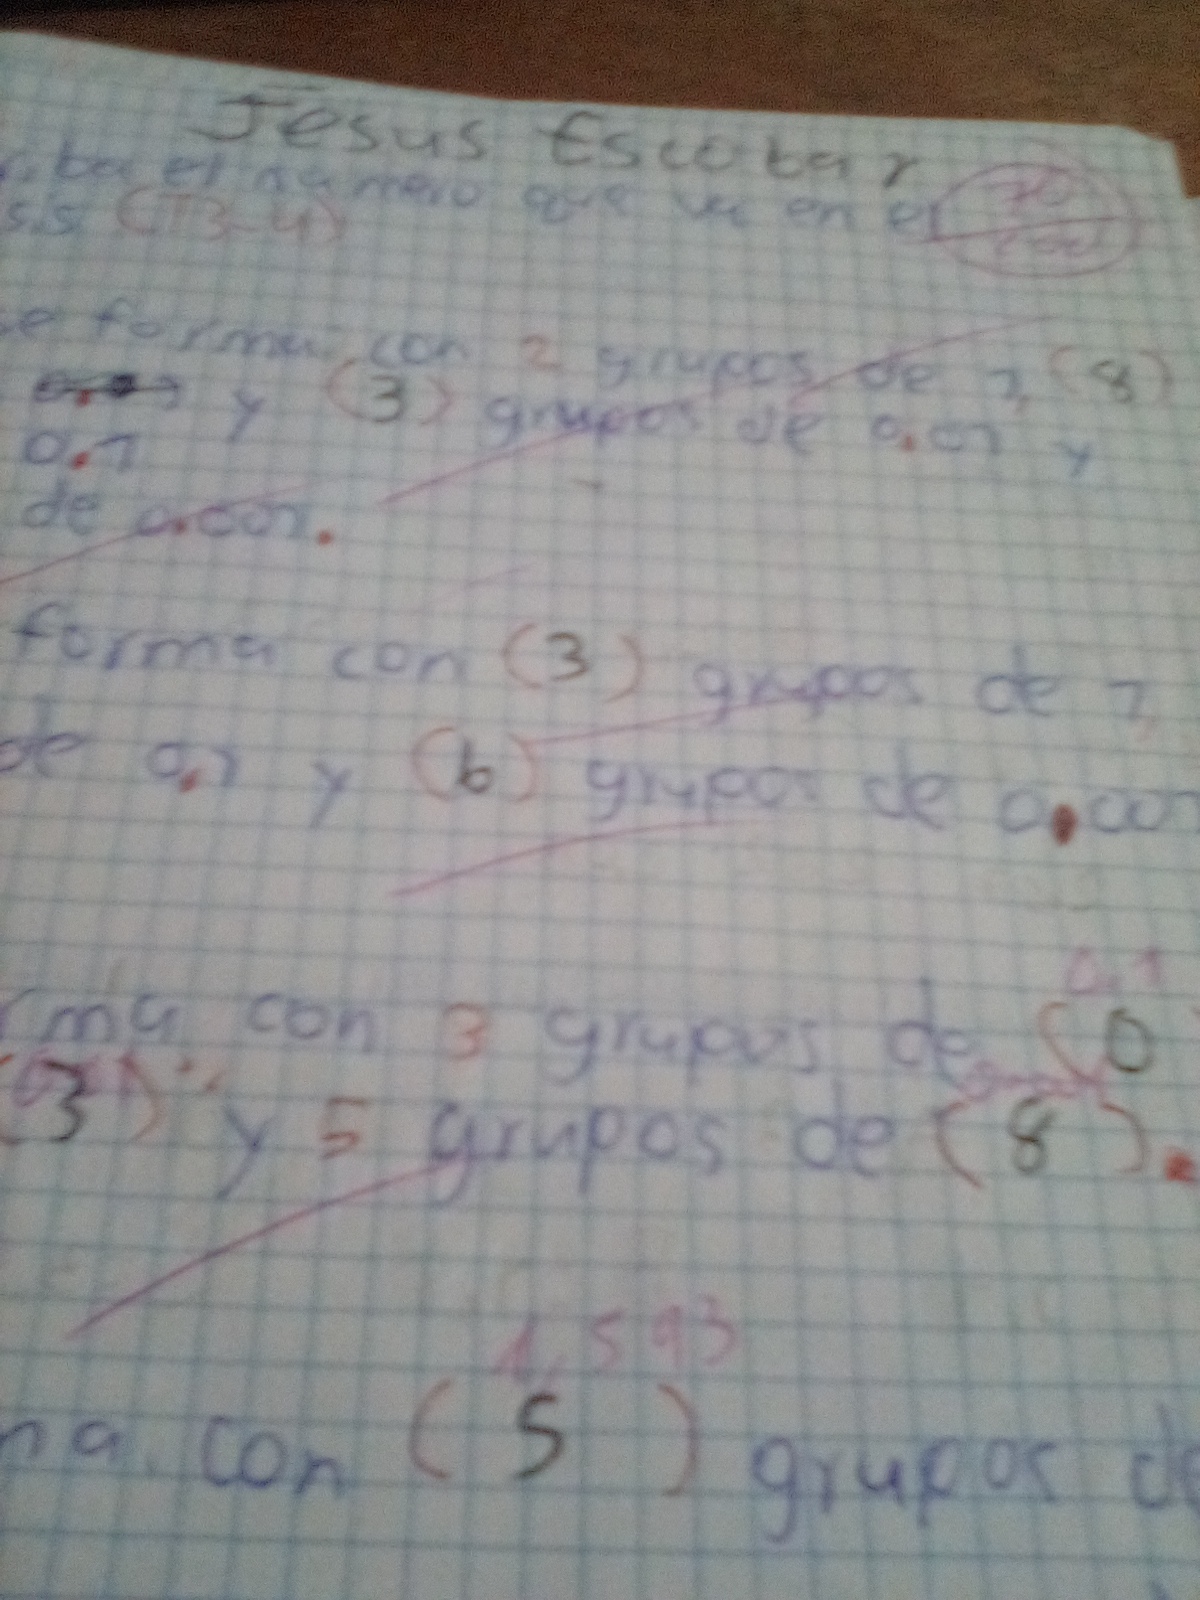 Jesus Escobar
ba el numero que va en el
(T3-4)
se forma con 2 grupos de 1, (8)
y (3) grupos de 0.01 y
0.1
de 0.001.
forma con (3) grupos de 1,
de 0.1 y (6) grupos de 0.001
0.1
rma con 3 grupos de (0
(3) y 5 grupos de (8).
1.593
ma con (5) grupos de